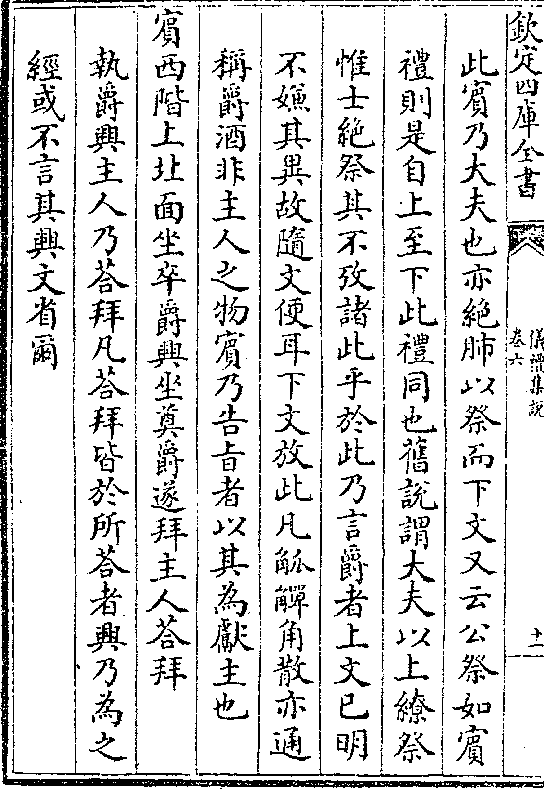 欽定四庫全書
儀禮集說
卷六
十一
此賓乃大夫也亦絶肺以祭而下文又云公祭如賓
禮則是自上至下此禮同也舊說謂大夫以上繚祭
惟士絶祭其不攷諸此乎於此乃言爵者上文已明
不嫌其異故隨文便耳下文放此凡觚觶角散亦通
稱爵酒非主人之物賓乃告旨者以其為獻主也
賓西階上北面坐卒爵興坐奠爵遂拜主人荅拜
執爵興主人乃荅拜凡荅拜皆於所荅者興乃為之
經或不言其興文省爾